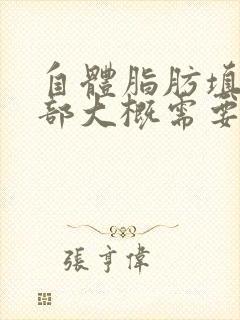 自體脂肪填
部大概需要
張亨偉